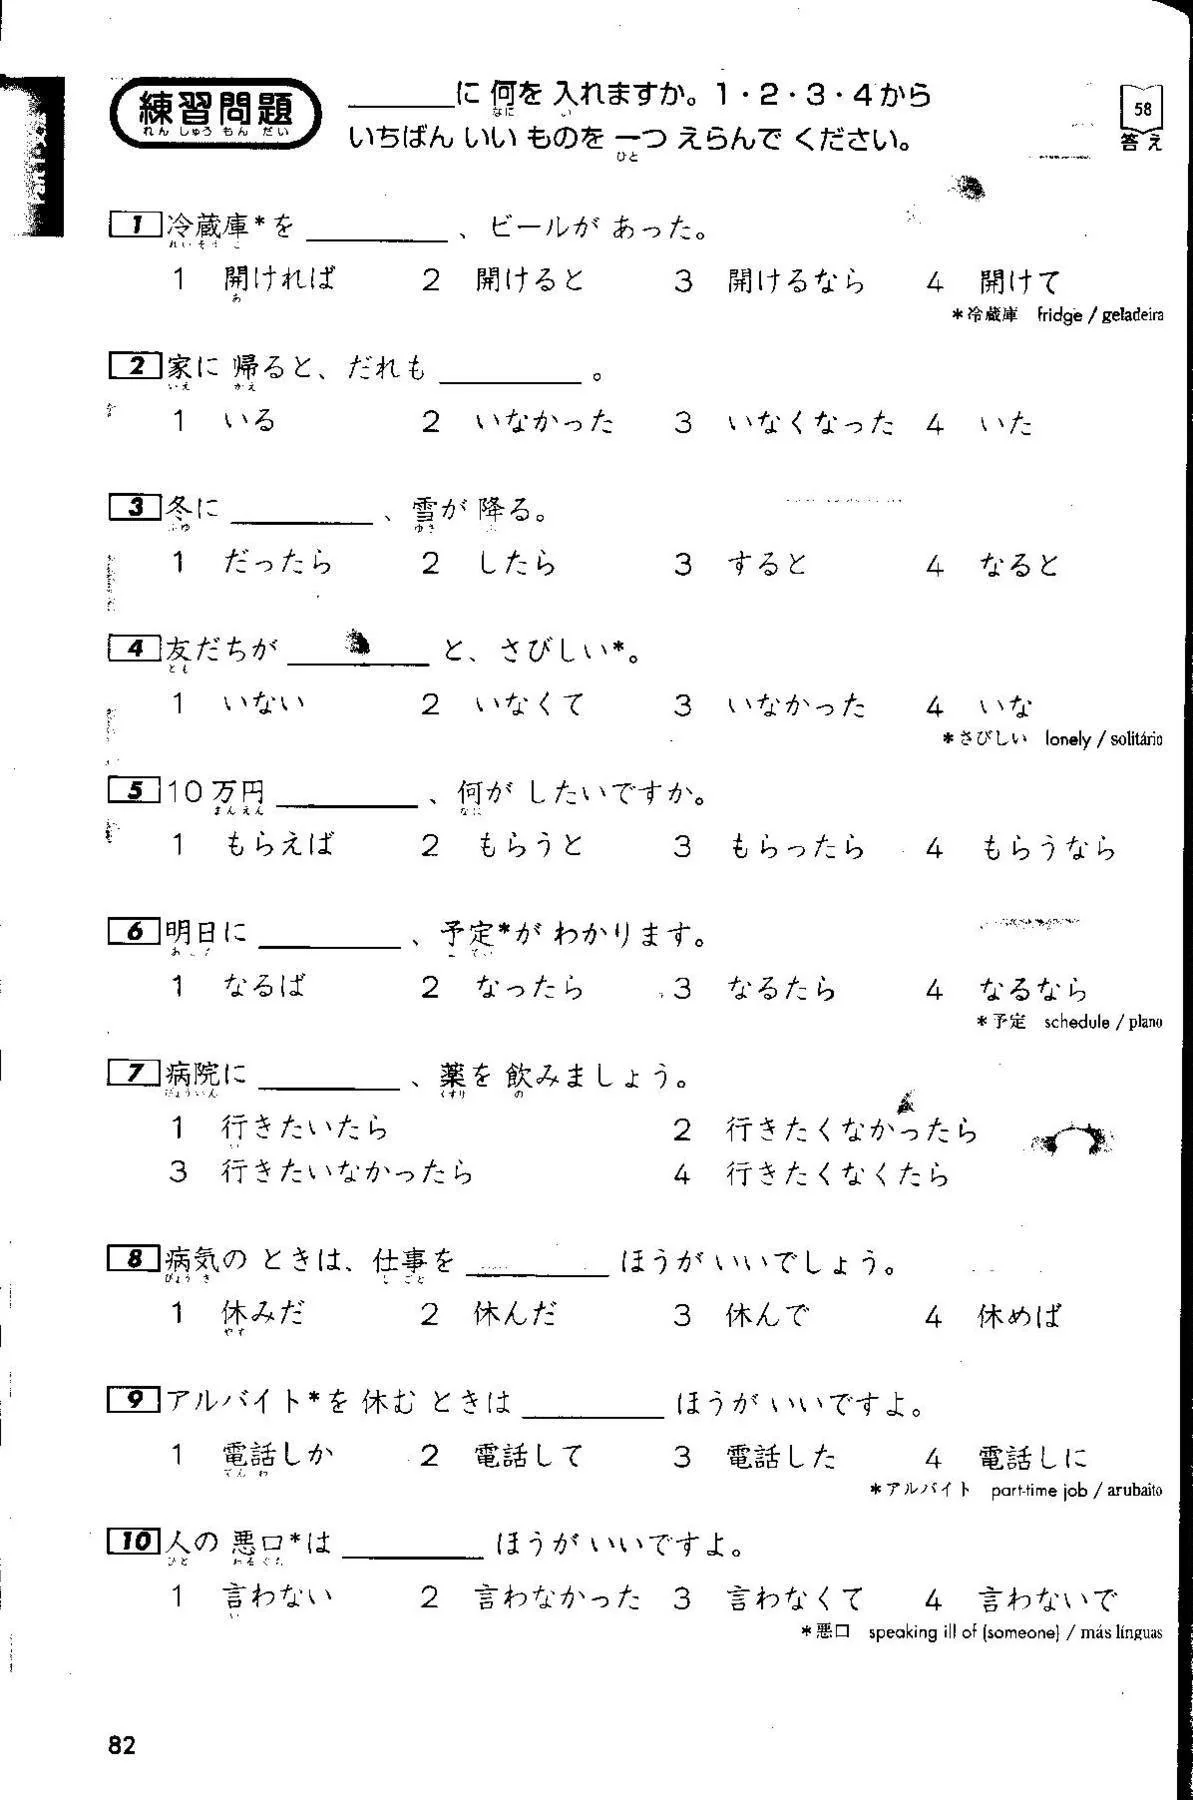 練習問題
れん しゅう もん だい
______に 何を 入れますか。1・2・3・4から
なに い
いちばん いい ものを 一つ えらんで ください。
ひと
58
答え
1 冷蔵庫*を ________、ビールが あった。
れいぞうこ
1 開ければ 2 開けると 3 開けるなら 4 開けて
あ
*冷蔵庫 fridge / geladeira
2 家に 帰ると、だれも ________。
いえ かえ
1 いる 2 いなかった 3 いなくなった 4 いた
3 冬に ________、雪が 降る。
ふゆ ゆき ふ
1 だったら 2 したら 3 すると 4 なると
4 友だちが ________ と、さびしい*。
とも
1 いない 2 いなくて 3 いなかった 4 いな
*さびしい lonely / solitário
5 10万円 ________、何が したいですか。
まんえん なに
1 もらえば 2 もらうと 3 もらったら 4 もらうなら
6 明日に ________、予定*が わかります。
1 なるば 2 なったら 3 なるたら 4 なるなら
*予定 schedule / plano
7 病院に ________、薬を 飲みましょう。
びょういん くすり の
1 行きたいたら 2 行きたくなかったら
い
3 行きたいなかったら 4 行きたくなくたら
8 病気の ときは、仕事を ________ ほうが いいでしょう。
びょうき しごと
1 休みだ 2 休んだ 3 休んで 4 休めば
やす
9 アルバイト*を 休む ときは ________ ほうが いいですよ。
1 電話しか 2 電話して 3 電話した 4 電話しに
でんわ
*アルバイト part-time job / arubaito
10 人の 悪口*は ________ ほうが いいですよ。
ひと わるぐち
1 言わない 2 言わなかった 3 言わなくて 4 言わないで
い
*悪口 speaking ill of (someone) / más línguas
82